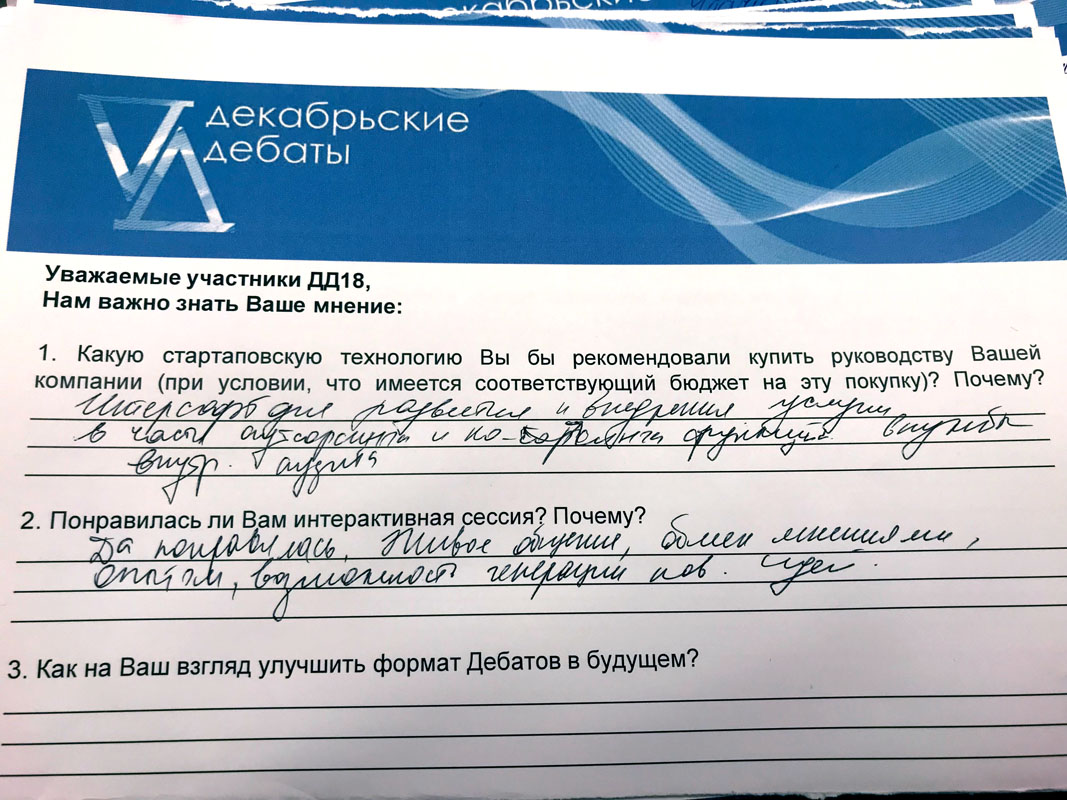 декабрьские
дебаты
Уважаемые участники ДД18,
Нам важно знать Ваше мнение:
1. Какую стартаповскую технологию Вы бы рекомендовали купить руководству Вашей
компании (при условии, что имеется соответствующий бюджет на эту покупку)? Почему?
для развития и внедрения услуги
в части аутсорсинга и ко-сорсинга функций службы
внутр. аудита
2. Понравилась ли Вам интерактивная сессия? Почему?
Да понравилась. Живое общение, обмен мнениями,
опытом, возможность генерации нов. идей.
3. Как на Ваш взгляд улучшить формат Дебатов в будущем?